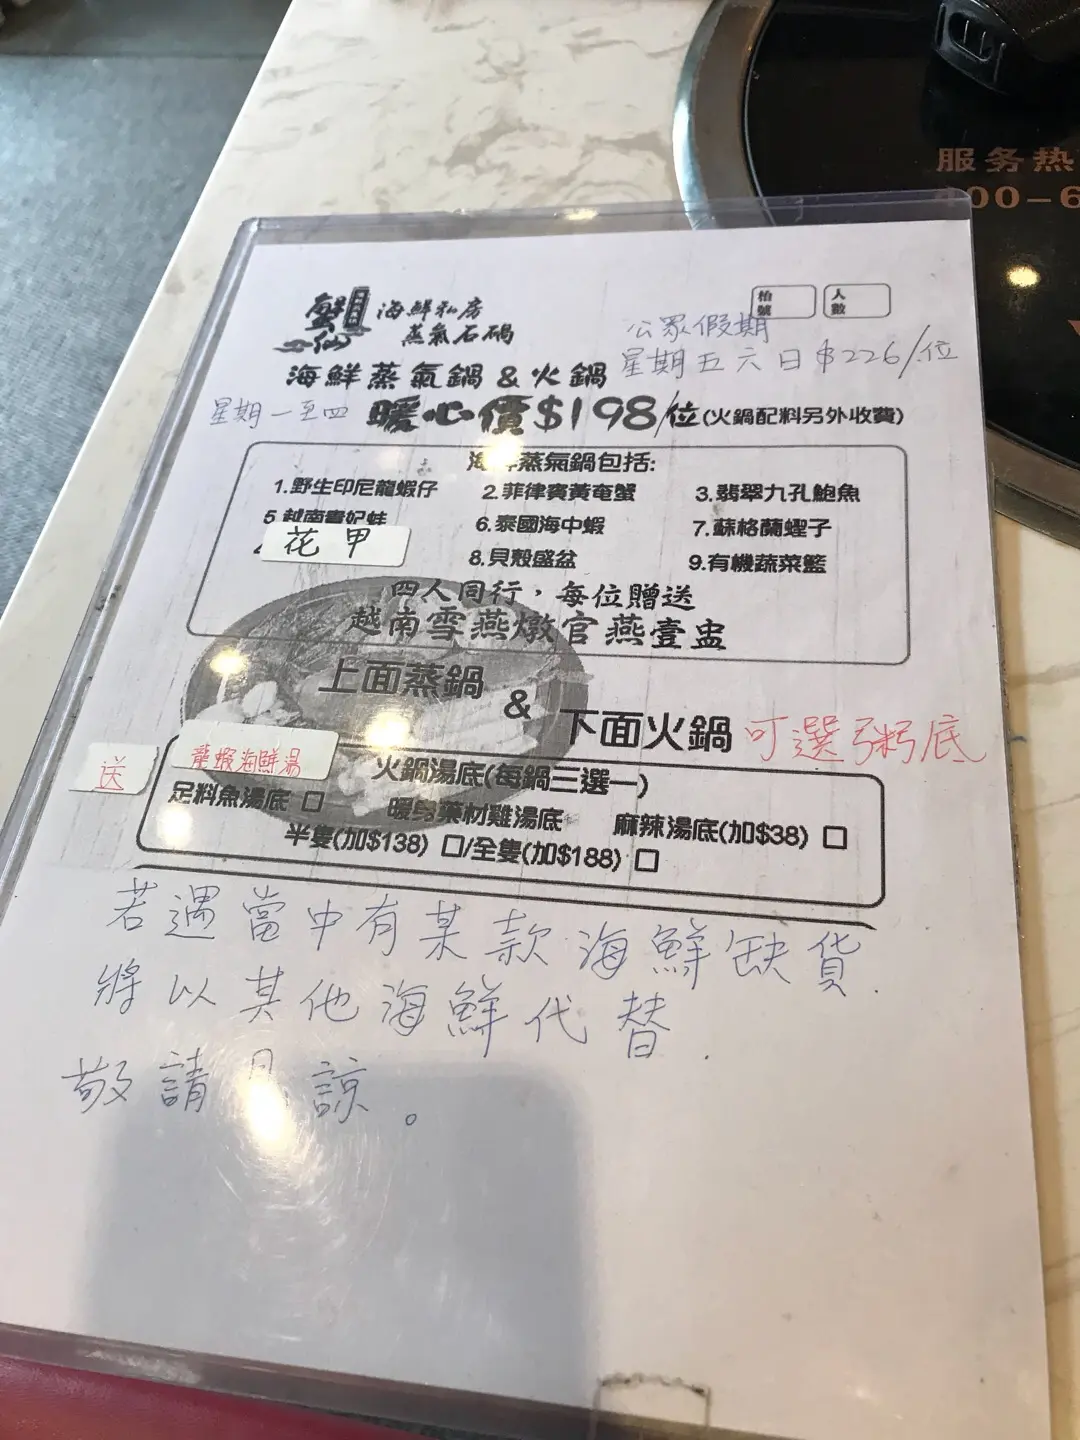 服务热
400-6
蟹仙
海鮮私房
蒸氣石鍋
枱號
人數
公眾假期
星期五六日$226/位
海鮮蒸氣鍋&火鍋
星期一至四 暖心價$198/位(火鍋配料另外收費)
海鮮蒸氣鍋包括:
1.野生印尼龍蝦仔 2.菲律賓黃奄蟹 3.翡翠九孔鮑魚
5.越南貴妃蚌 6.泰國海中蝦 7.蘇格蘭蟶子
花甲 8.貝殼盛盆 9.有機蔬菜籃
四人同行，每位贈送
越南雪燕燉官燕壹盅
上面蒸鍋 & 下面火鍋 可選粥底
送 龍蝦海鮮湯 火鍋湯底(每鍋三選一)
足料魚湯底 □ 暖身藥材雞湯底 麻辣湯底(加$38) □
半隻(加$138) □/全隻(加$188) □
若遇當中有某款海鮮缺貨.
將以其他海鮮代替.
敬請見諒。